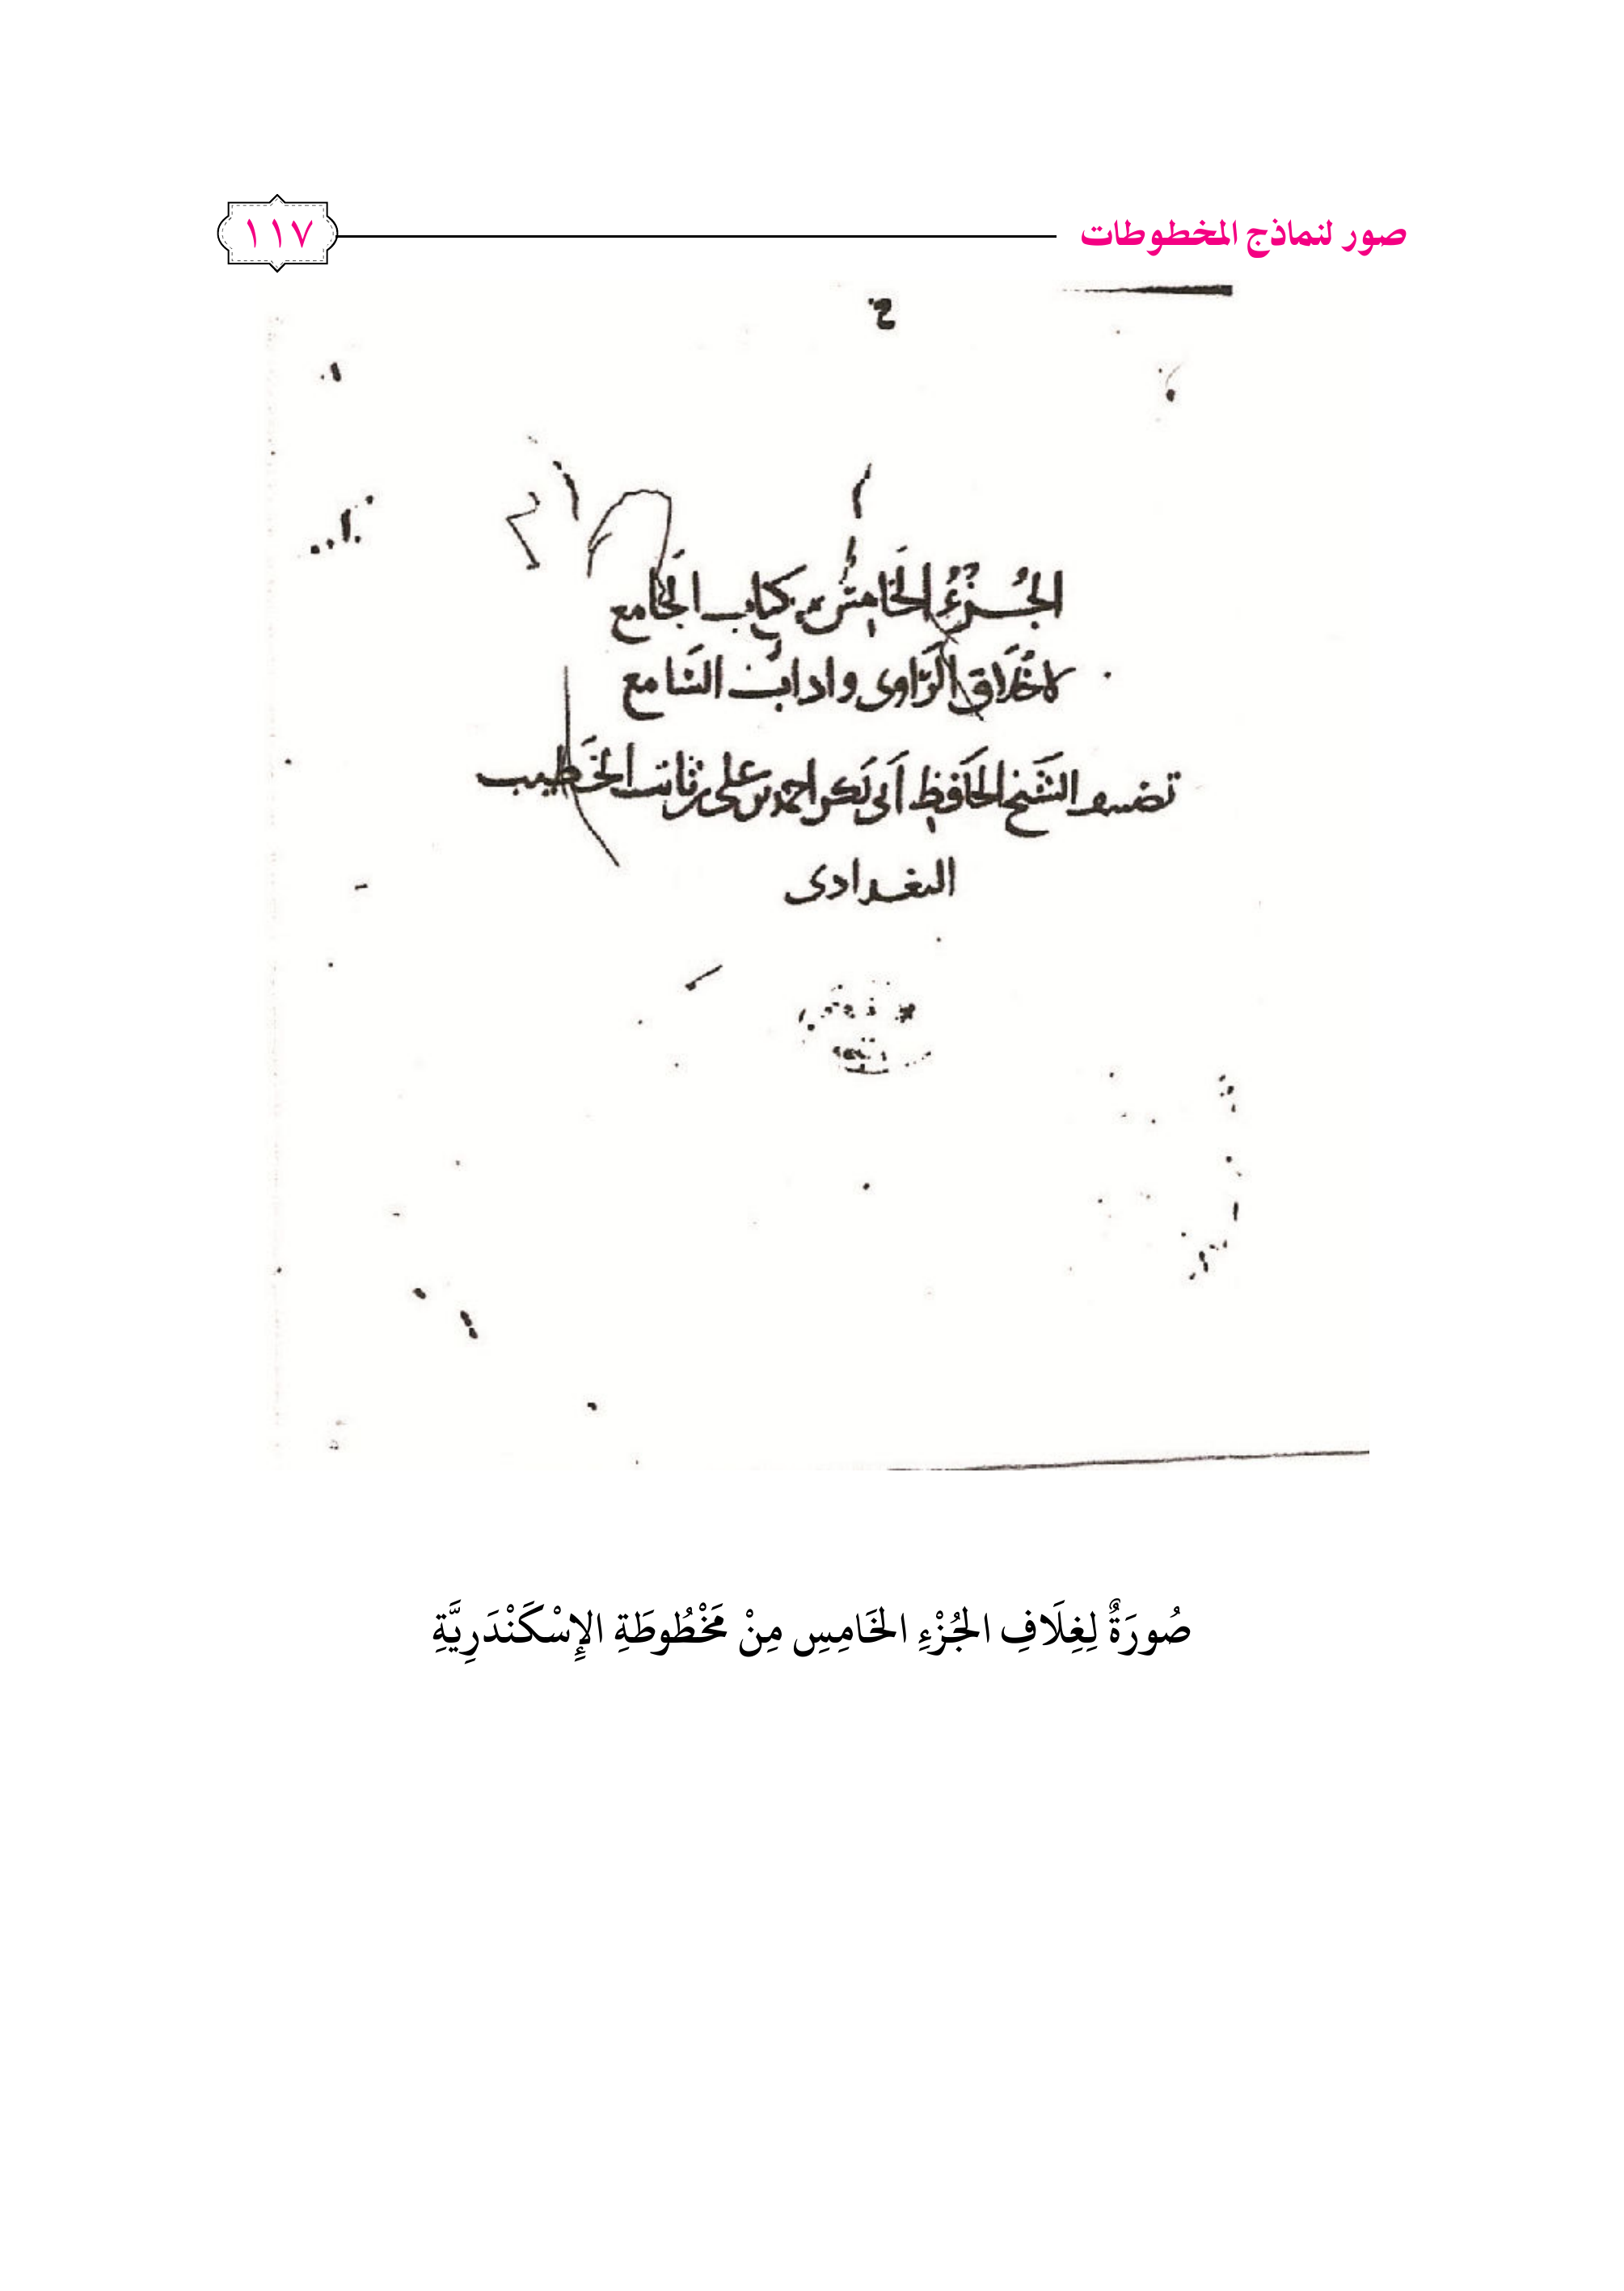 صور لنماذج المخطوطات
١١٧
الجُزْءُ الخَامِسُ من كتاب الجَامع
لاخْلَاق الرَّاوى واداب السَّامع
تصنيف الشَّيخ الحَافِظ أَبى بَكر احمد بن على بن ثابت الخَطيب
البغدادى
صُورَةٌ لِغِلَافِ الجُزْءِ الخَامِسِ مِنْ مَخْطُوطَةِ الإِسْكَنْدَرِيَّةِ